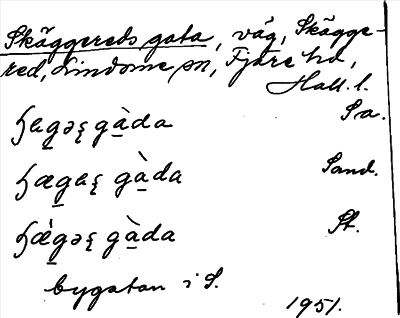 Skäggereds gata, väg, Skägge-
red, Lindome sn, Fjäre hd,
Hall. l.
gàda Sa.
gàda Sand.
gàda St.
bygatan i S.
1951.